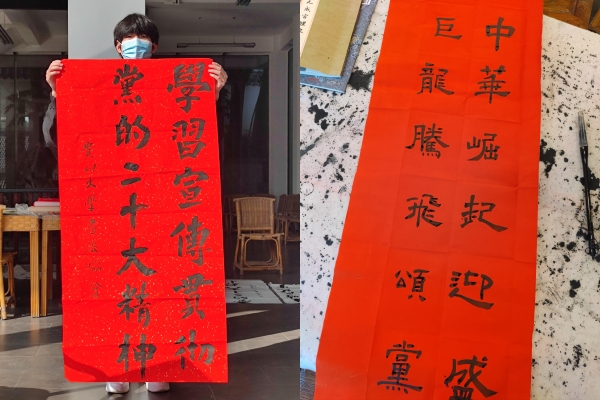 學習宣傳貫彻
黨的二十大精神
中華崛起迎盛
巨龍騰飛頌黨